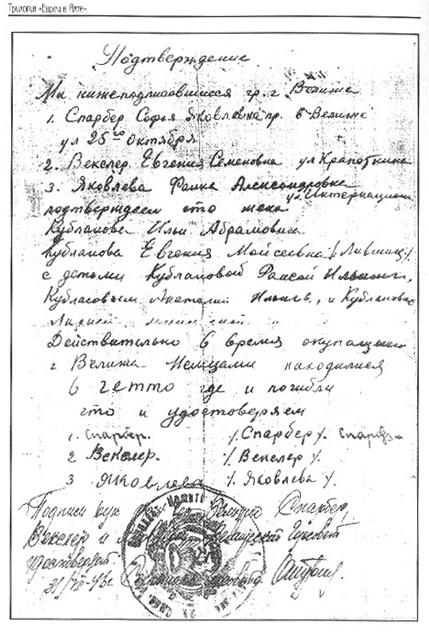 Трилогия «Евреи в Ялте»
Подтверждение
Мы нижеподписавшиеся гр. г Велижа
1. Спарбер Софья Яковлевна пр. в Велиже
ул 25го Октября
2. Векслер Евгения Семеновна ул Крапоткина
3. Яковлева Фаина Александровна
ул. Интернацион
подтверждаем что жена
Кубланова Ильи Абрамовича
Кубланова Евгения Мойсеевна /Лившиц/.
с детьми Кублановой Раисой
Кублановым Анатолий, и Кубланова
Действительно в время окупации
г Велижа Немцами находилися
в гетто где и погибли
что и удостоверяем
1. Спарбер. /. Спарбер /. Спарбер
2 Векслер. /. Векслер /.
3 Яковлева /. Яковлева /.
Подписи рук Спарбер,
Векслер и
удостоверяет